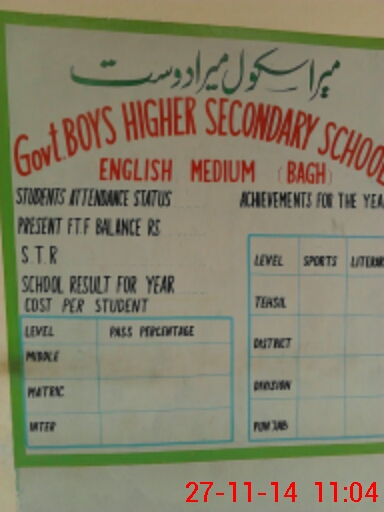 میرا سکول میرا دوست
Govt. BOYS HIGHER SECONDARY SCHOOL
ENGLISH MEDIUM (BAGH)
STUDENTS ATTENDANCE STATUS
PRESENT FT.F BALANCE RS
S.T.R
SCHOOL RESULT FOR YEAR
COST PER STUDENT
LEVEL PASS PERCENTAGE
MIDDLE
MATRIC
INTER
ACHIEVEMENTS FOR THE YEA
LEVEL SPORTS LITERAR
TEHSIL
DISTRICT
DIVISION
PUNJAB
27-11-14 11:04